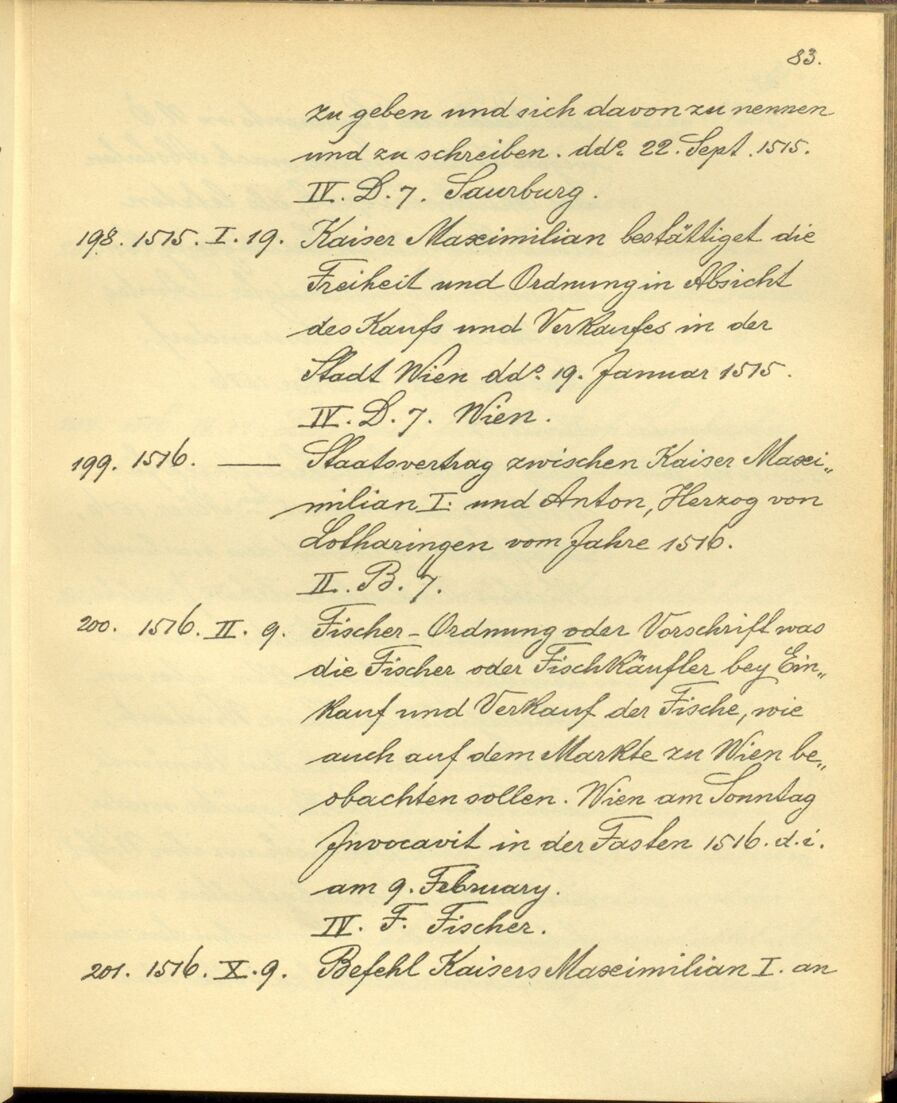 83.
zu geben und sich davon zu nennen
und zu schreiben. ddo. 22. Sept. 1515.
IV. D. 7. Saurburg.
198. 1515. I. 19. Kaiser Maximilian bestättiget die
Freiheit und Ordnung in Absicht
des Kaufs und Verkaufes in der
Stadt Wien ddo. 19. Januar 1515.
IV. D. 7. Wien.
199. 1516. — Staatsvertrag zwischen Kaiser Maxi„
milian I. und Anton, Herzog von
Lotharingen vom Jahre 1516.
II. B. 7.
200. 1516. II. 9. Fischer-Ordnung oder Vorschrift was
die Fischer oder Fischkäufler bey Ein„
kauf und Verkauf der Fische, wie
auch auf dem Markte zu Wien be„
obachten sollen. Wien am Sonntag
Jnvocavit in der Fasten 1516. d. i.
am 9. February.
IV. F. Fischer.
201. 1516. X. 9. Befehl Kaisers Maximilian I. an